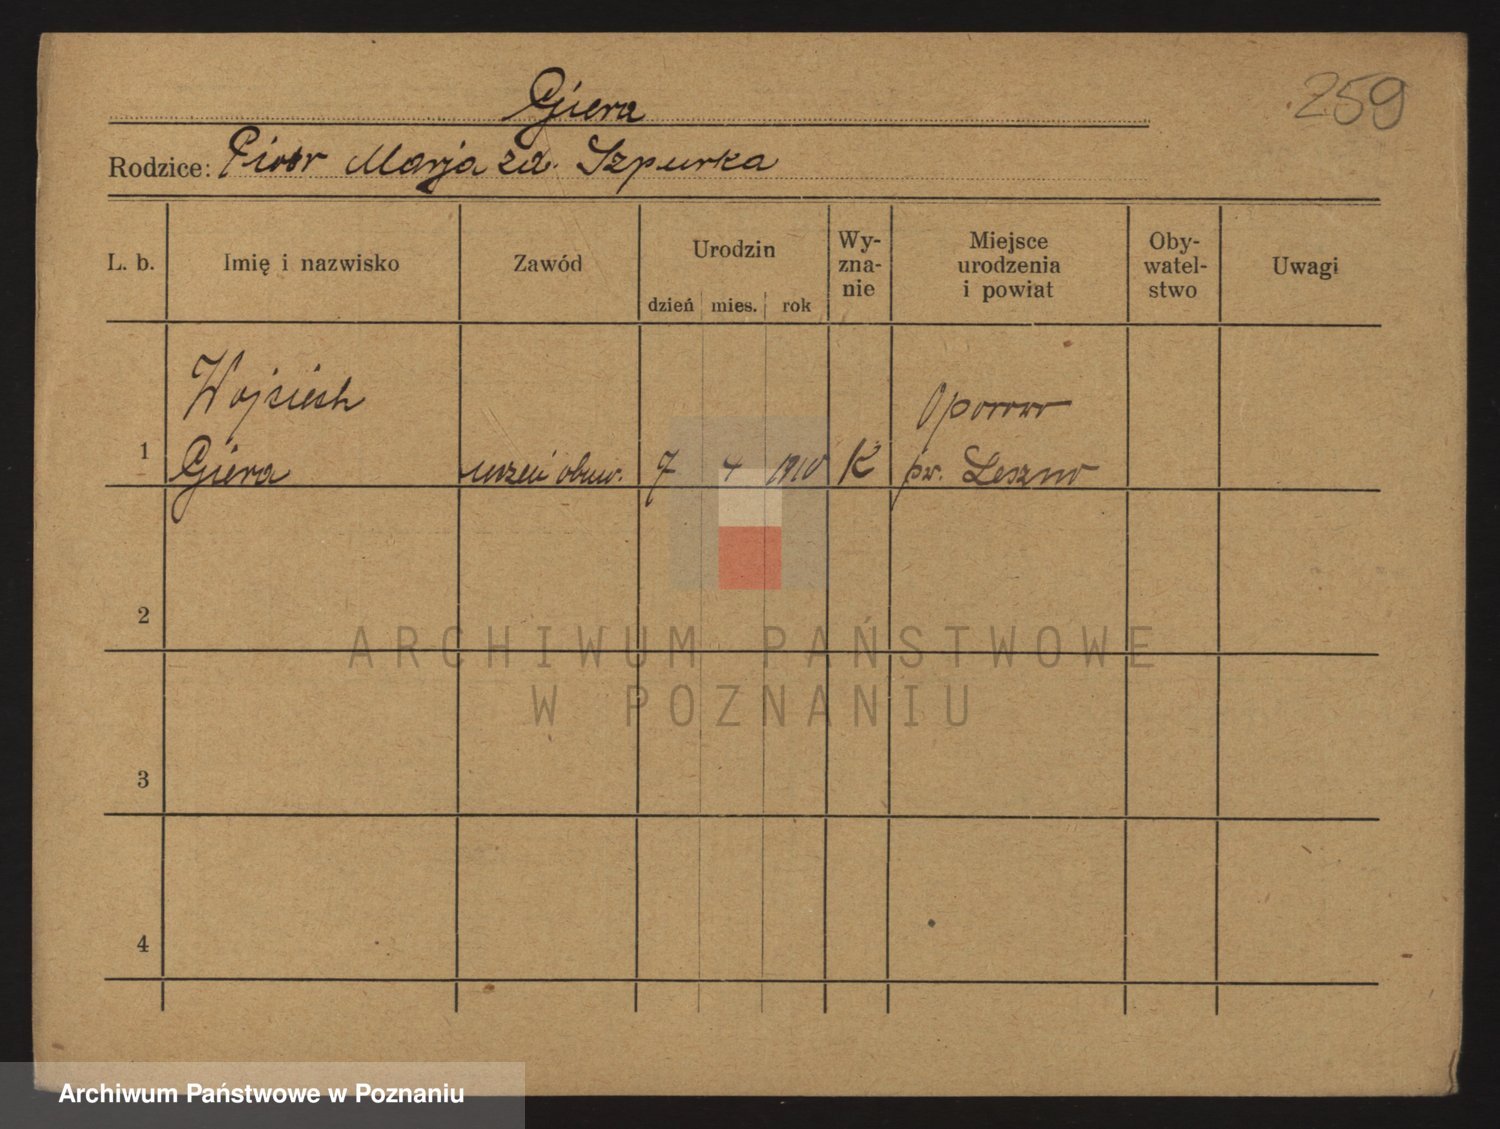 Giera
259
Rodzice: Piotr Marja zd. Szpurka
L. b.
Imię i nazwisko
Zawód
Urodzin
dzień mies. rok
Wy-
zna-
nie
Miejsce
urodzenia
i powiat
Oby-
watel-
stwo
Uwagi
1
Wojciech
Giera
uczeń obuw.
7 4 1910
K
Oporowo
pw. Leszno
2
3
4
ARCHIWUM PAŃSTWOWE
W POZNANIU
Archiwum Państwowe w Poznaniu